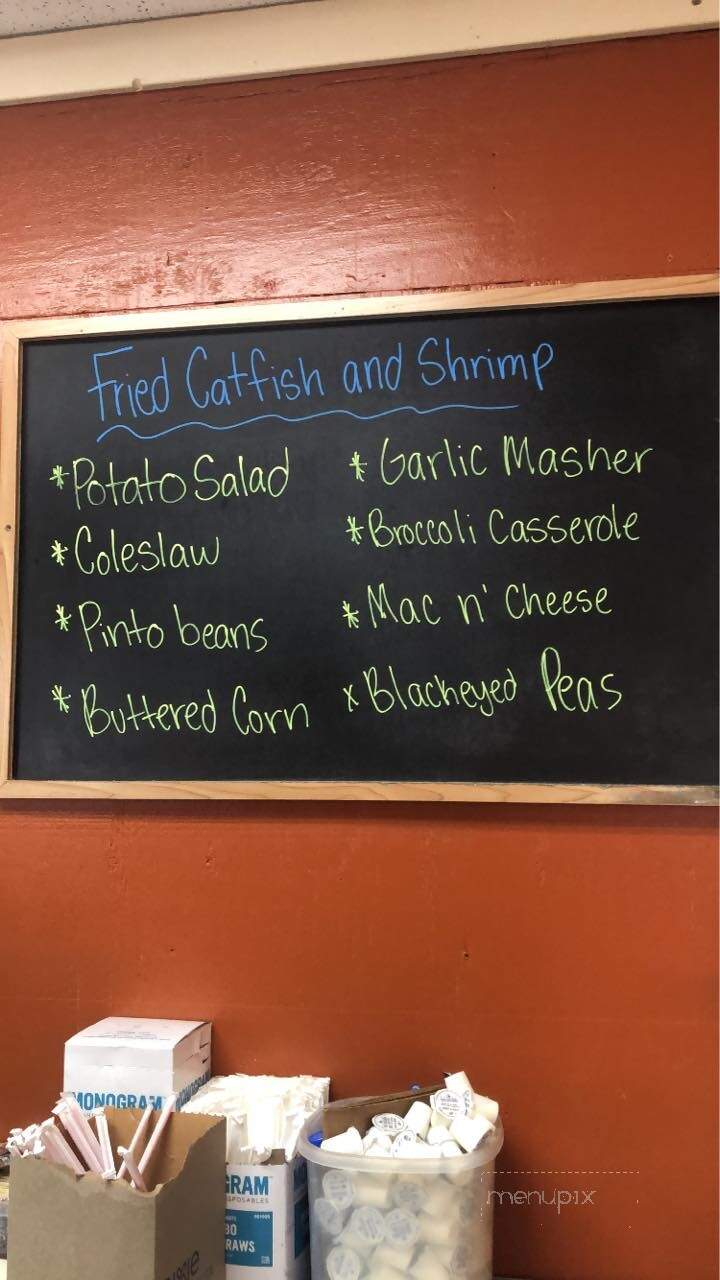 Fried Catfish and Shrimp
*Potato Salad
*Coleslaw
*Pinto beans
*Buttered Corn
*Garlic Masher
*Broccoli Casserole
*Mac n' Cheese
x Blackeyed Peas
MONOGRAM
MONOGRAM
GRAM
DISPOSABLES
RAWS
menupix